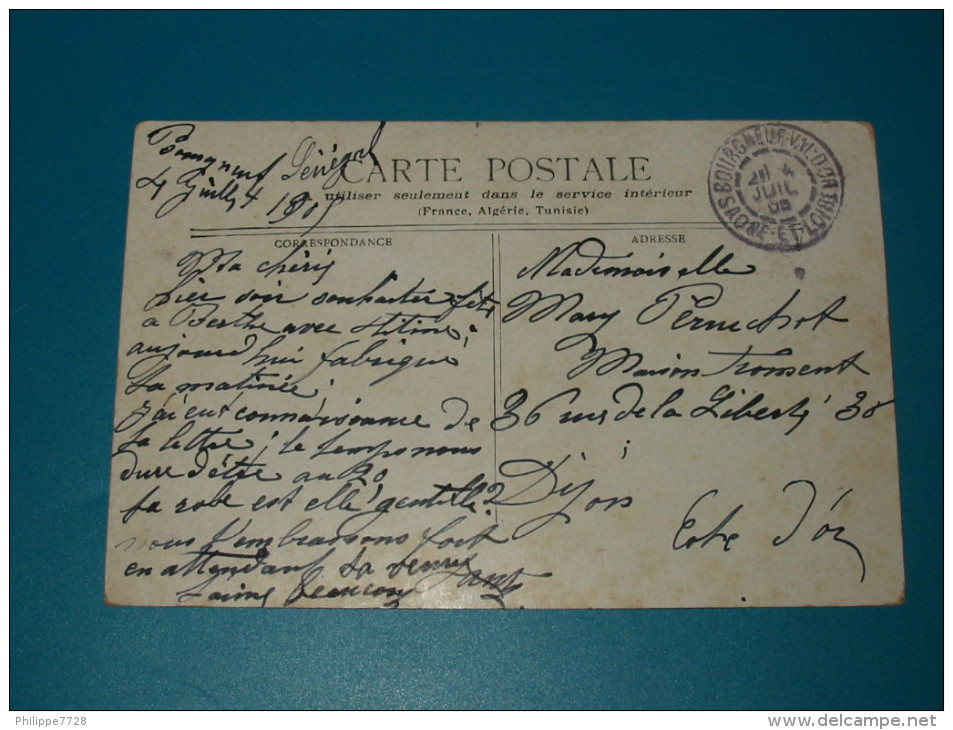 Bourgneuf
4 Juillet 190
CARTE POSTALE
utiliser seulement dans le service intérieur
(France, Algérie, Tunisie)
BOURGNEUF-VAL-D'OR
4
JUIL
SAONE-ET-LOIRE
CORRESPONDANCE
Ma chérie
hier soir souhaiter fête
a Berthe avec Titine
aujourd'hui fabrique
ta matinée
j'ai eu connaissance de
ta lettre; le temps nous
dure d'être au 20
ta robe est elle gentille?
nous t'embrassons fort
en attendant ta venue
t'aime beaucoup
ADRESSE
Mademoiselle
Mary Perruchot
Maison Froment
36 rue de la Liberté 38
Dijon
Cote d'or
Philippe7728
delcampe.net